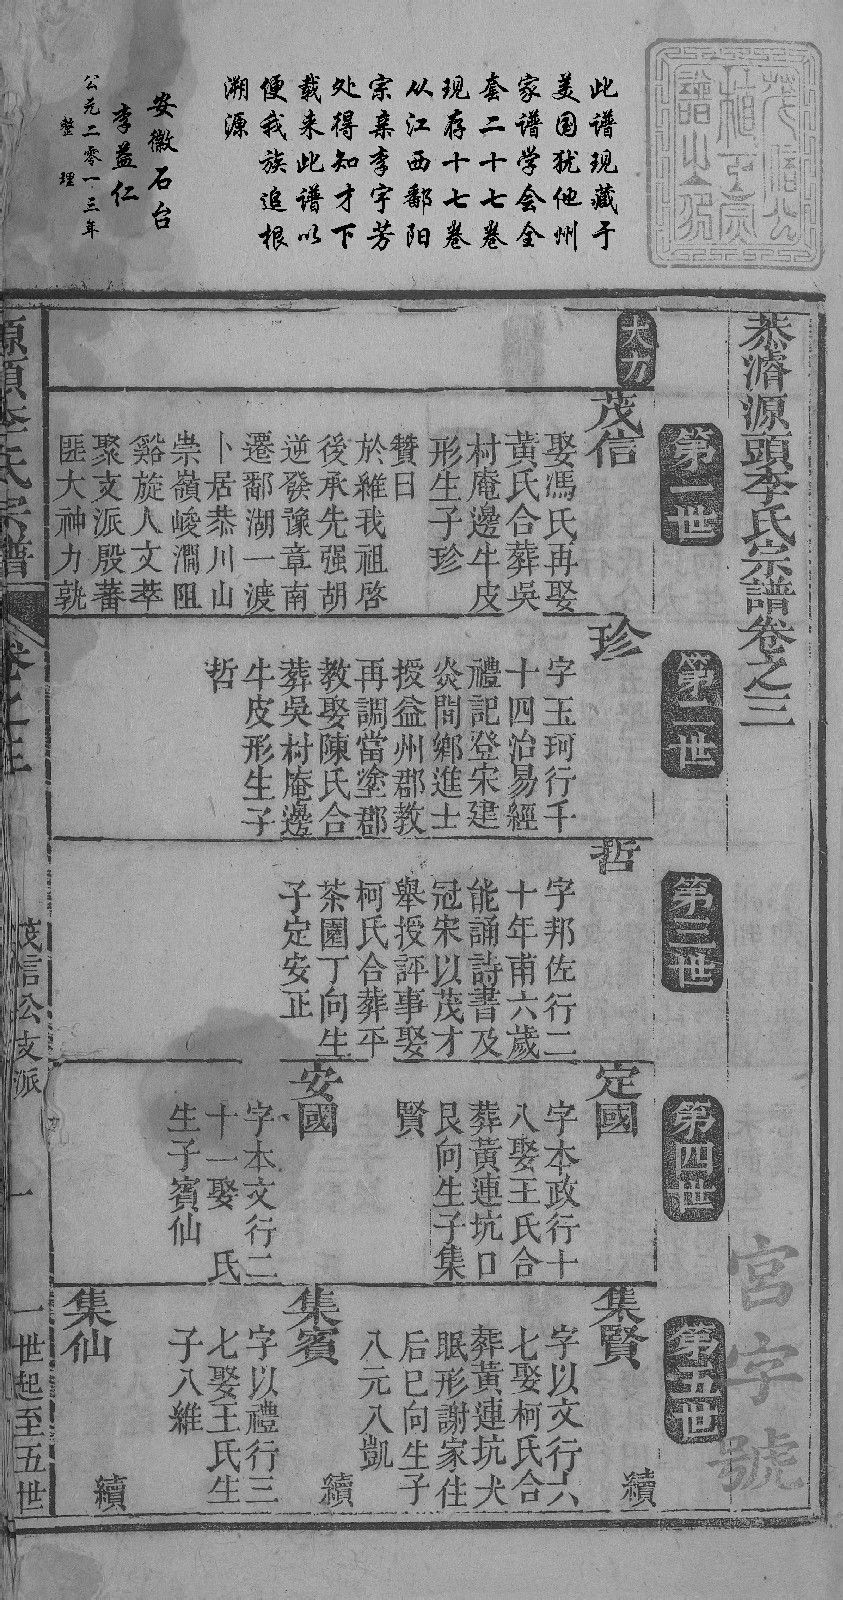 此谱现藏于
美国犹他州
家谱学会全
套二十七卷
现存十七卷
从江西鄱阳
宗亲李宇芳
处得知才下
载来此谱以
便我族追根
溯源
安徽石台
李益仁
公元二零一三年
整理
恭濬源頭李氏宗譜卷之三
宮字號
第一世
大力
茂信
娶馮氏再娶
黃氏合葬吳
村庵邊牛皮
形生子珍
贊曰
於維我祖啓
後承先强胡
逆發豫章南
遷鄱湖一渡
卜居恭川山
崇嶺峻澗阻
谿旋人文萃
聚支派殷蕃
匪大神力孰
第二世
珍
字玉珂行千
十四治易經
禮記登宋建
炎間鄉進士
授益州郡教
再調當塗郡
教娶陳氏合
葬吳村庵邊
牛皮形生子
哲
第三世
哲
字邦佐行二
十年甫六歲
能誦詩書及
冠宋以茂才
舉授評事娶
柯氏合葬平
茶園丁向生
子定安正
第四世
定國
字本政行十
八娶王氏合
葬黃連坑口
艮向生子集
賢
安國
字本文行二
十一娶 氏
生子賓仙
第五世
集賢
字以文行六
七娶柯氏合
葬黃連坑犬
眠形謝家住
后巳向生子
八元八凱
續
集賓
字以禮行三
七娶王氏生
子八維
續
集仙
續
源頭李氏宗譜
卷之三
茂信公支派
一
一世起至五世